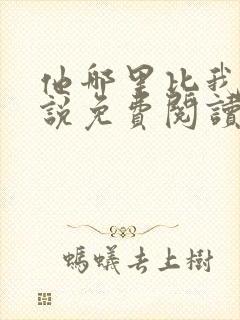 他哪里比我
說免費閱讀
螞蟻去上樹